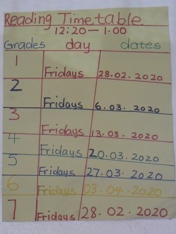 Reading Time table
12:20 - 1:00
Grades day dates
1 Fridays 28.02.2020
2 Fridays 6.03.2020
3 Fridays 13.03.2020
4 Fridays 20.03.2020
5 Fridays 27.03.2020
6 Fridays 03.04.2020
7 Fridays 28.02.2020